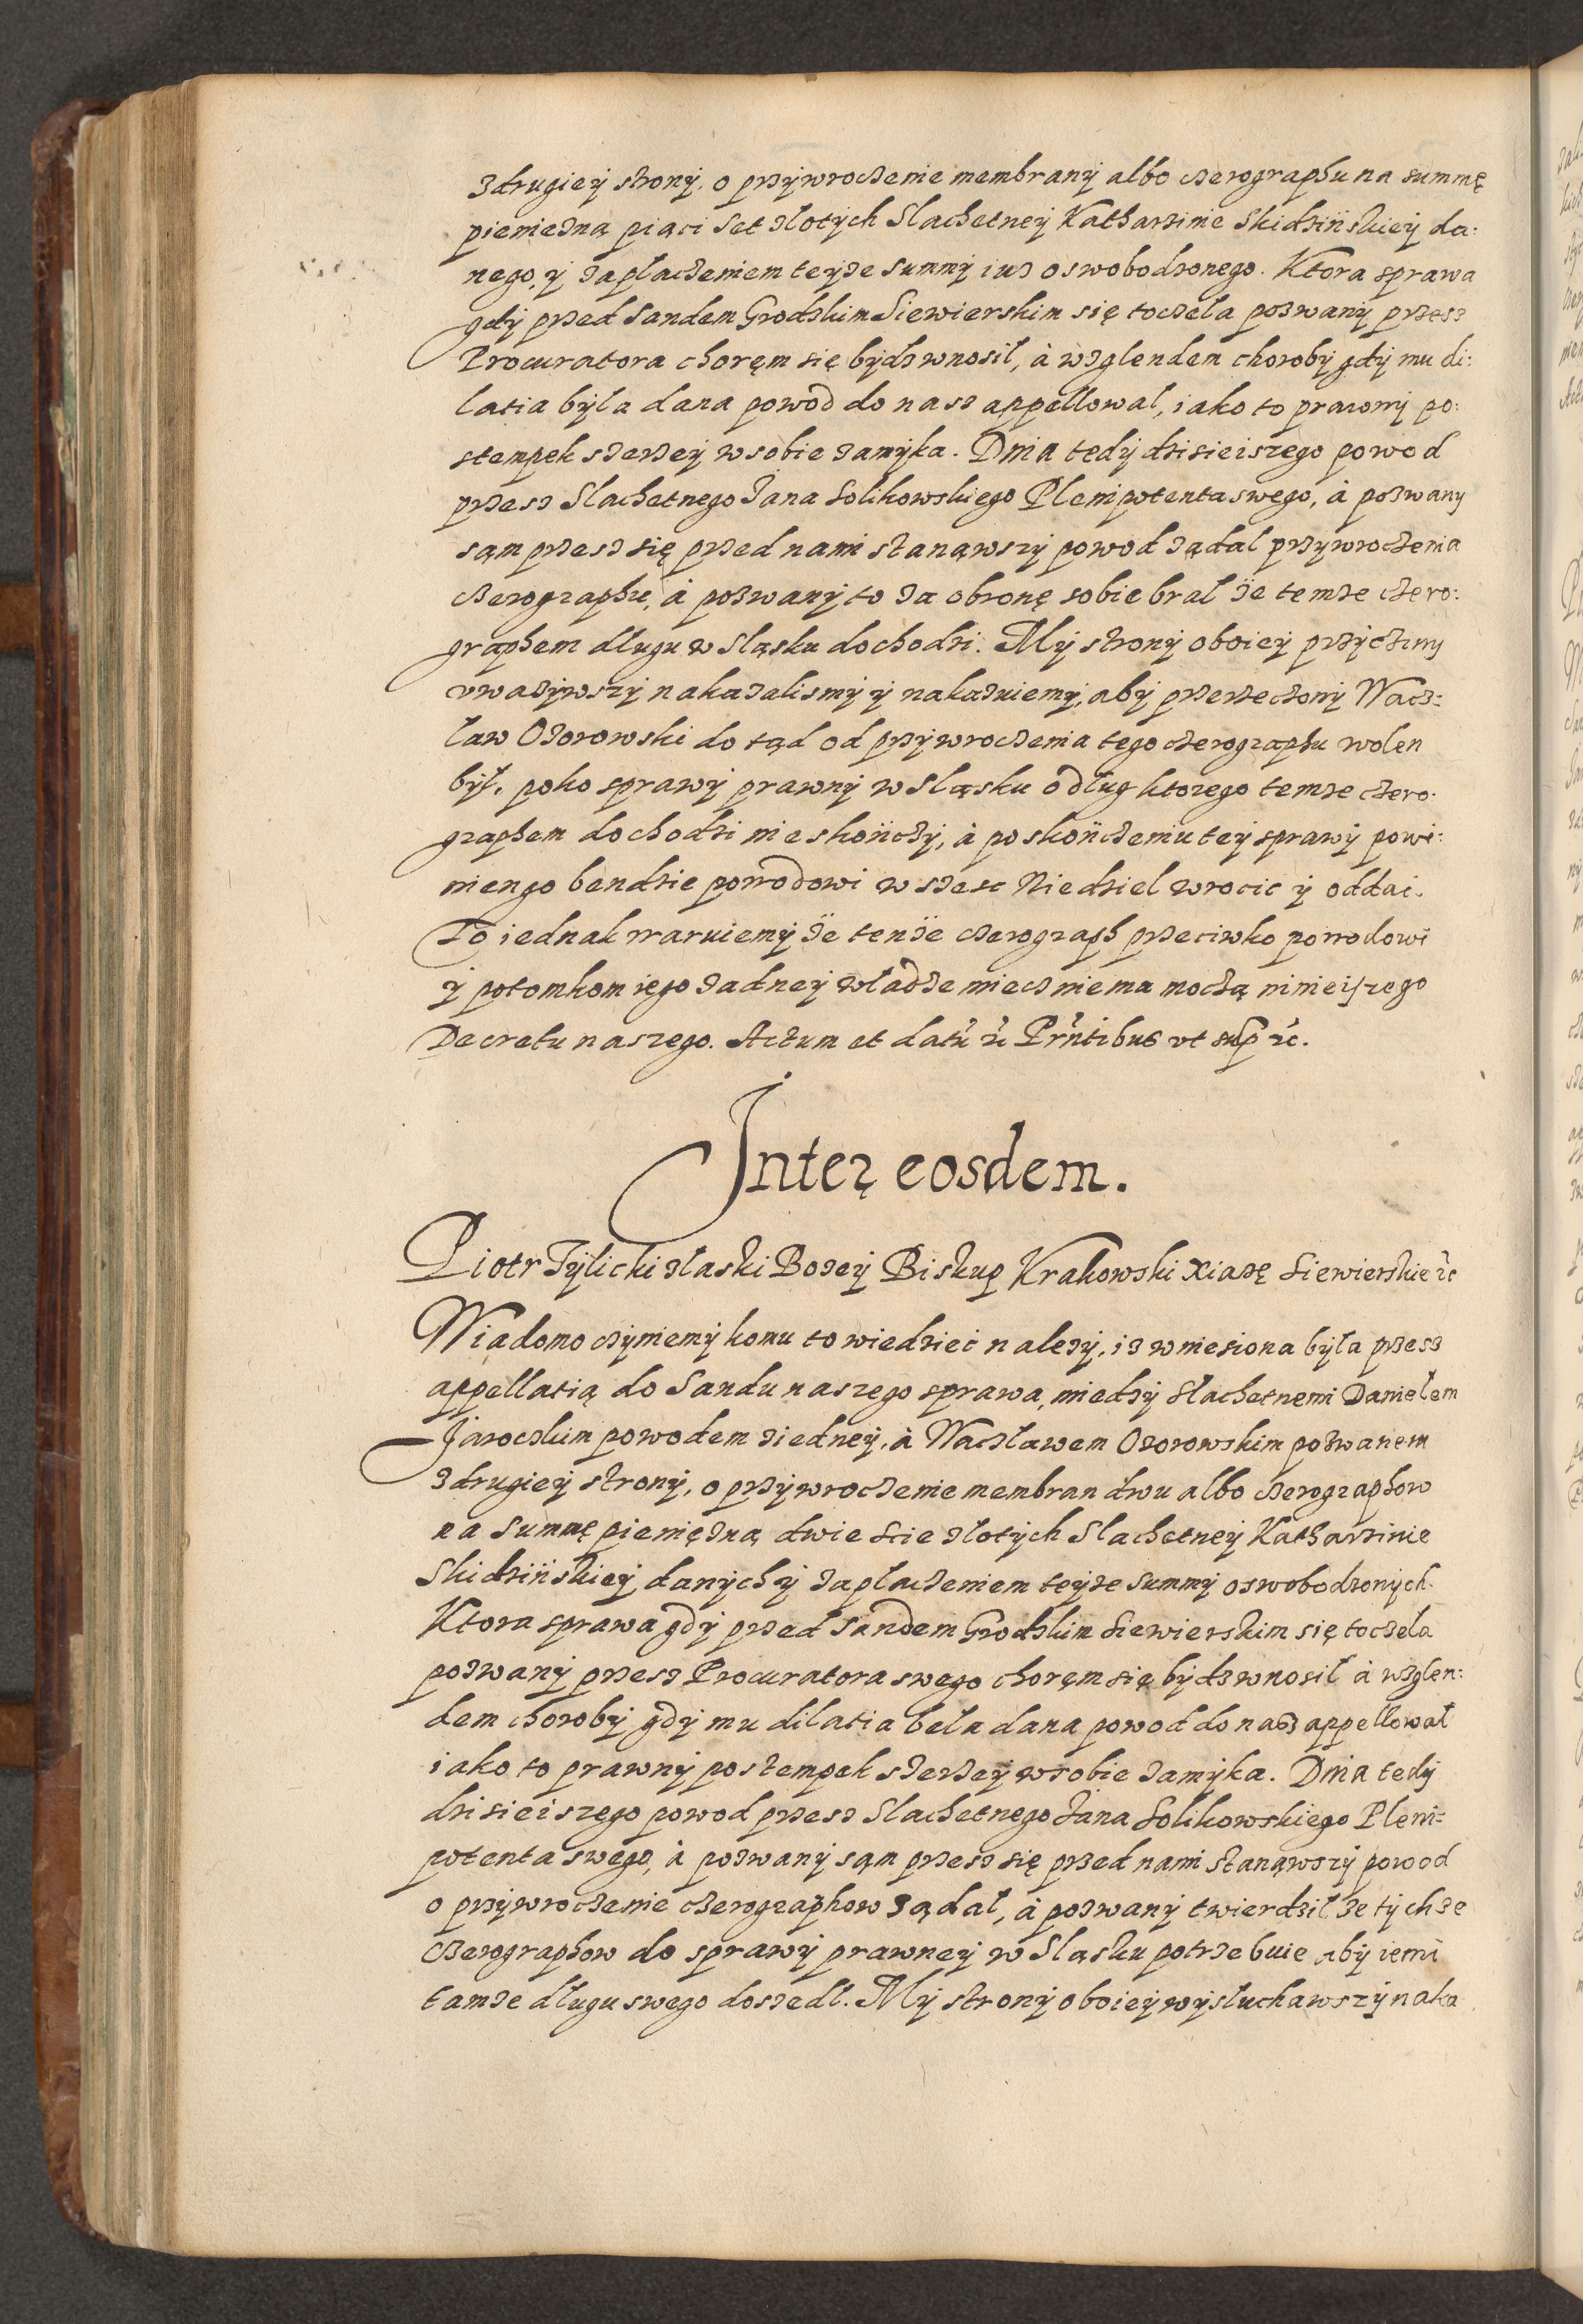 zdrugieÿ stronÿ, o przÿwroczenie membranÿ albo czerographu na summę
pienieżną piąci set złotÿch Slachetneÿ Katharzinie Skidzińskieÿ da:
nego, ÿ zapłaczeniem teÿze summÿ iuz oswobodzonego. Ktora sprawa
gdÿ przed Sandem Grodzkim Siewierskim się toczela pozwanÿ przesz
Procuratora choręm się bÿdz wnosił, à wzglendem chorobÿ gdÿ mu di:
latia bÿla dana powod do nasz appellowal, iako to prawnÿ po:
stempek szerzeÿ wsobie zamÿka. Dnia tedÿ dzisieiszego powod
przesz Slachetnego Jana Solikowskiego Plenipotenta swego, à pozwany
sąm przesz się przed nami stanąwszÿ powod ządal przÿwroczenia
czerographu, à pozwanÿ to za obronę sobie bral że temze czero:
graphem długu w Sląsku dochodzi. Mÿ stronÿ oboieÿ przÿczinÿ
uwazÿwszÿ nakazalismÿ ÿ nakazuiemÿ, abÿ przerzeczonÿ Wacz:
ław Ozorowski do tąd od przÿwroczenia tego czerographu wolen
bÿł, poko sprawÿ prawnÿ w Sląsku o dług ktorego temze czero:
graphem dochodzi nie skończÿ, à po skończeniu teÿ sprawÿ powi:
niengo bendzie powodowi w szesc Niedziel wrocic ÿ oddać.
To iednak waruiemÿ że tenże czerograph przeciwko powodowi
ÿ potomkom iego zadneÿ władze miecz nie ma moczą ninieiszego
Decretu naszego. Actum et datũ ꝛc Prñtibus ut sup̃ ꝛc.
Inter eosdem.
Piotr Tÿlicki złaski Bozeÿ Biskup Krakowski Xiazę Siewierskie ꝛc
Wiadomo czÿniemÿ komu to wiedzieć nalezÿ, iz wniesiona bÿła przesz
appellatią do Sandu naszego sprawa, miedzÿ Slachetnemi Danielem
Jaroczkim powodem ziedneÿ, à Waczławem Ozorowskim pozwanem
zdrugieÿ stronÿ, o przÿwroczenie membran dwu albo czerographow
na summę pieniężną dwie scie złotÿch Slachetneÿ Katharzinie
Skidzińskieÿ danÿch ÿ zapłaczeniem teÿze summÿ oswobodzonÿch.
Ktora sprawa gdÿ przed Sandem Grodzkim Siewierskim się toczela
pozwanÿ przesz Procuratora swego choręm się bÿdz wnosił à wzglen:
dem chorobÿ gdÿ mu dilatia bela dana powod do nasz appellował
iako to prawnÿ postempek szerzeÿ wsobie zamÿka. Dnia tedÿ
dzisieiszego powod przesz Slachetnego Jana Solikowskiego Pleni:
potenta swego, à pozwanÿ sąm przesz się przed nami stanąwszÿ powod
o przÿwroczenie czerographow ządał, à pozwanÿ twierdził ze tÿchze
czerographow do sprawÿ prawneÿ w Sląsku potrzebuie abÿ iemi
tamze długu swego doszedł. Mÿ stronÿ oboieÿ wÿsłuchawszÿ naka